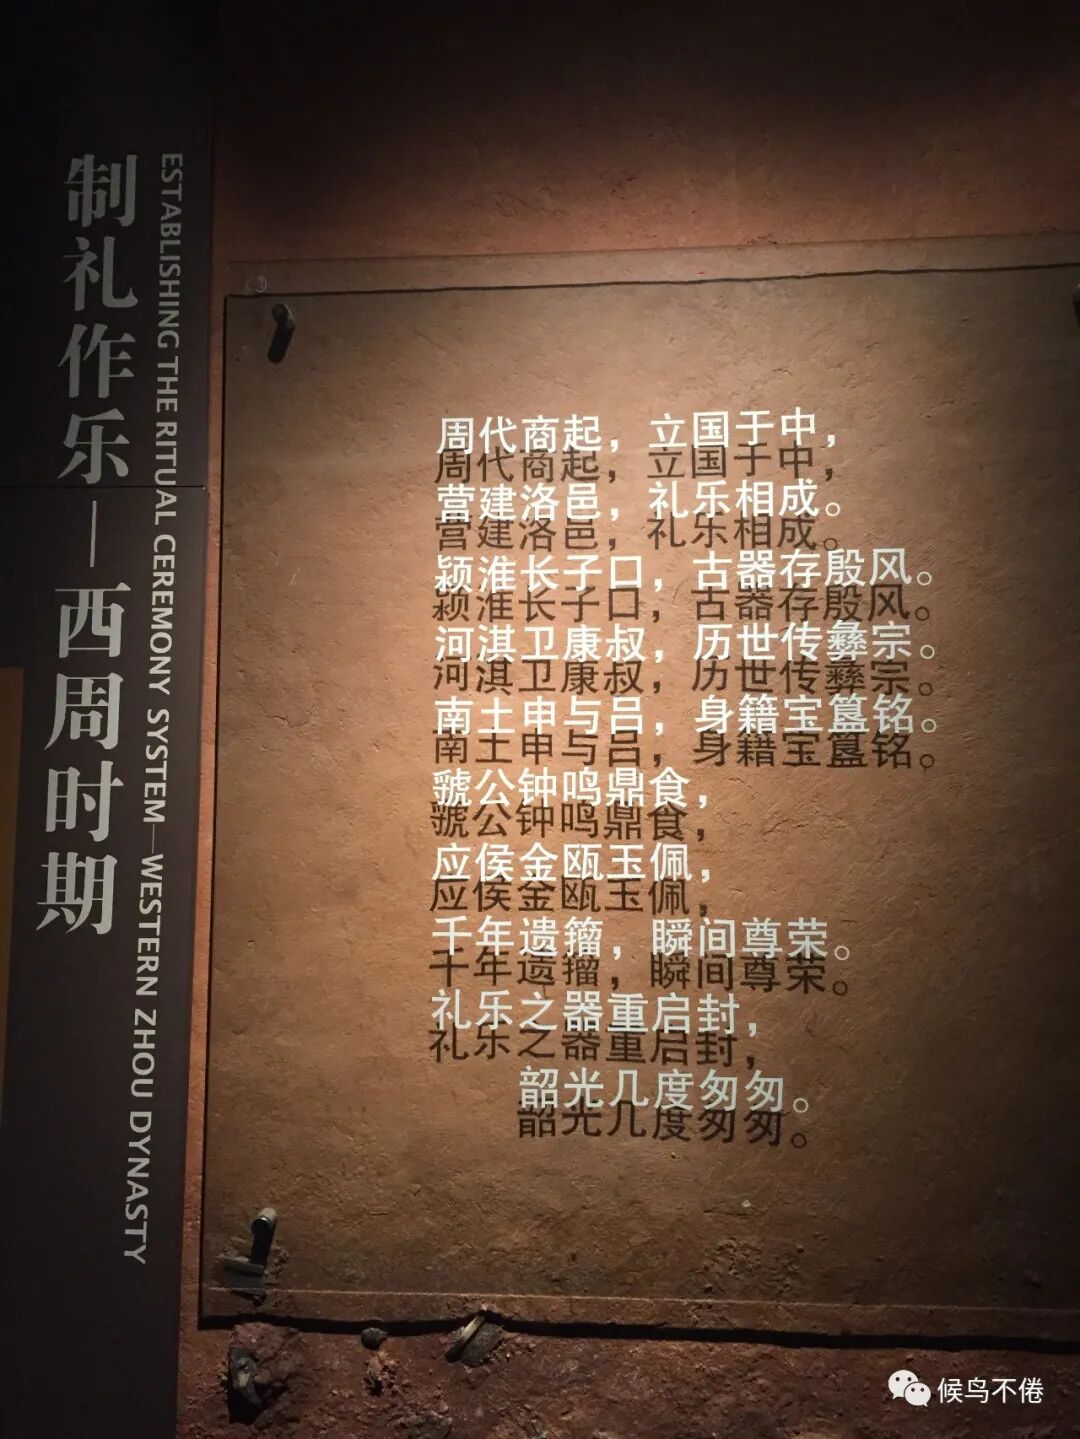 制礼作乐—西周时期
ESTABLISHING THE RITUAL CEREMONY SYSTEM—WESTERN ZHOU DYNASTY
周代商起，立国于中，
营建洛邑，礼乐相成。
颍淮长子口，古器存殷风。
河淇卫康叔，历世传彝宗。
南土申与吕，身籍宝簋铭。
虢公钟鸣鼎食，
应侯金瓯玉佩，
千年遗籀，瞬间尊荣。
礼乐之器重启封，
韶光几度匆匆。
候鸟不倦